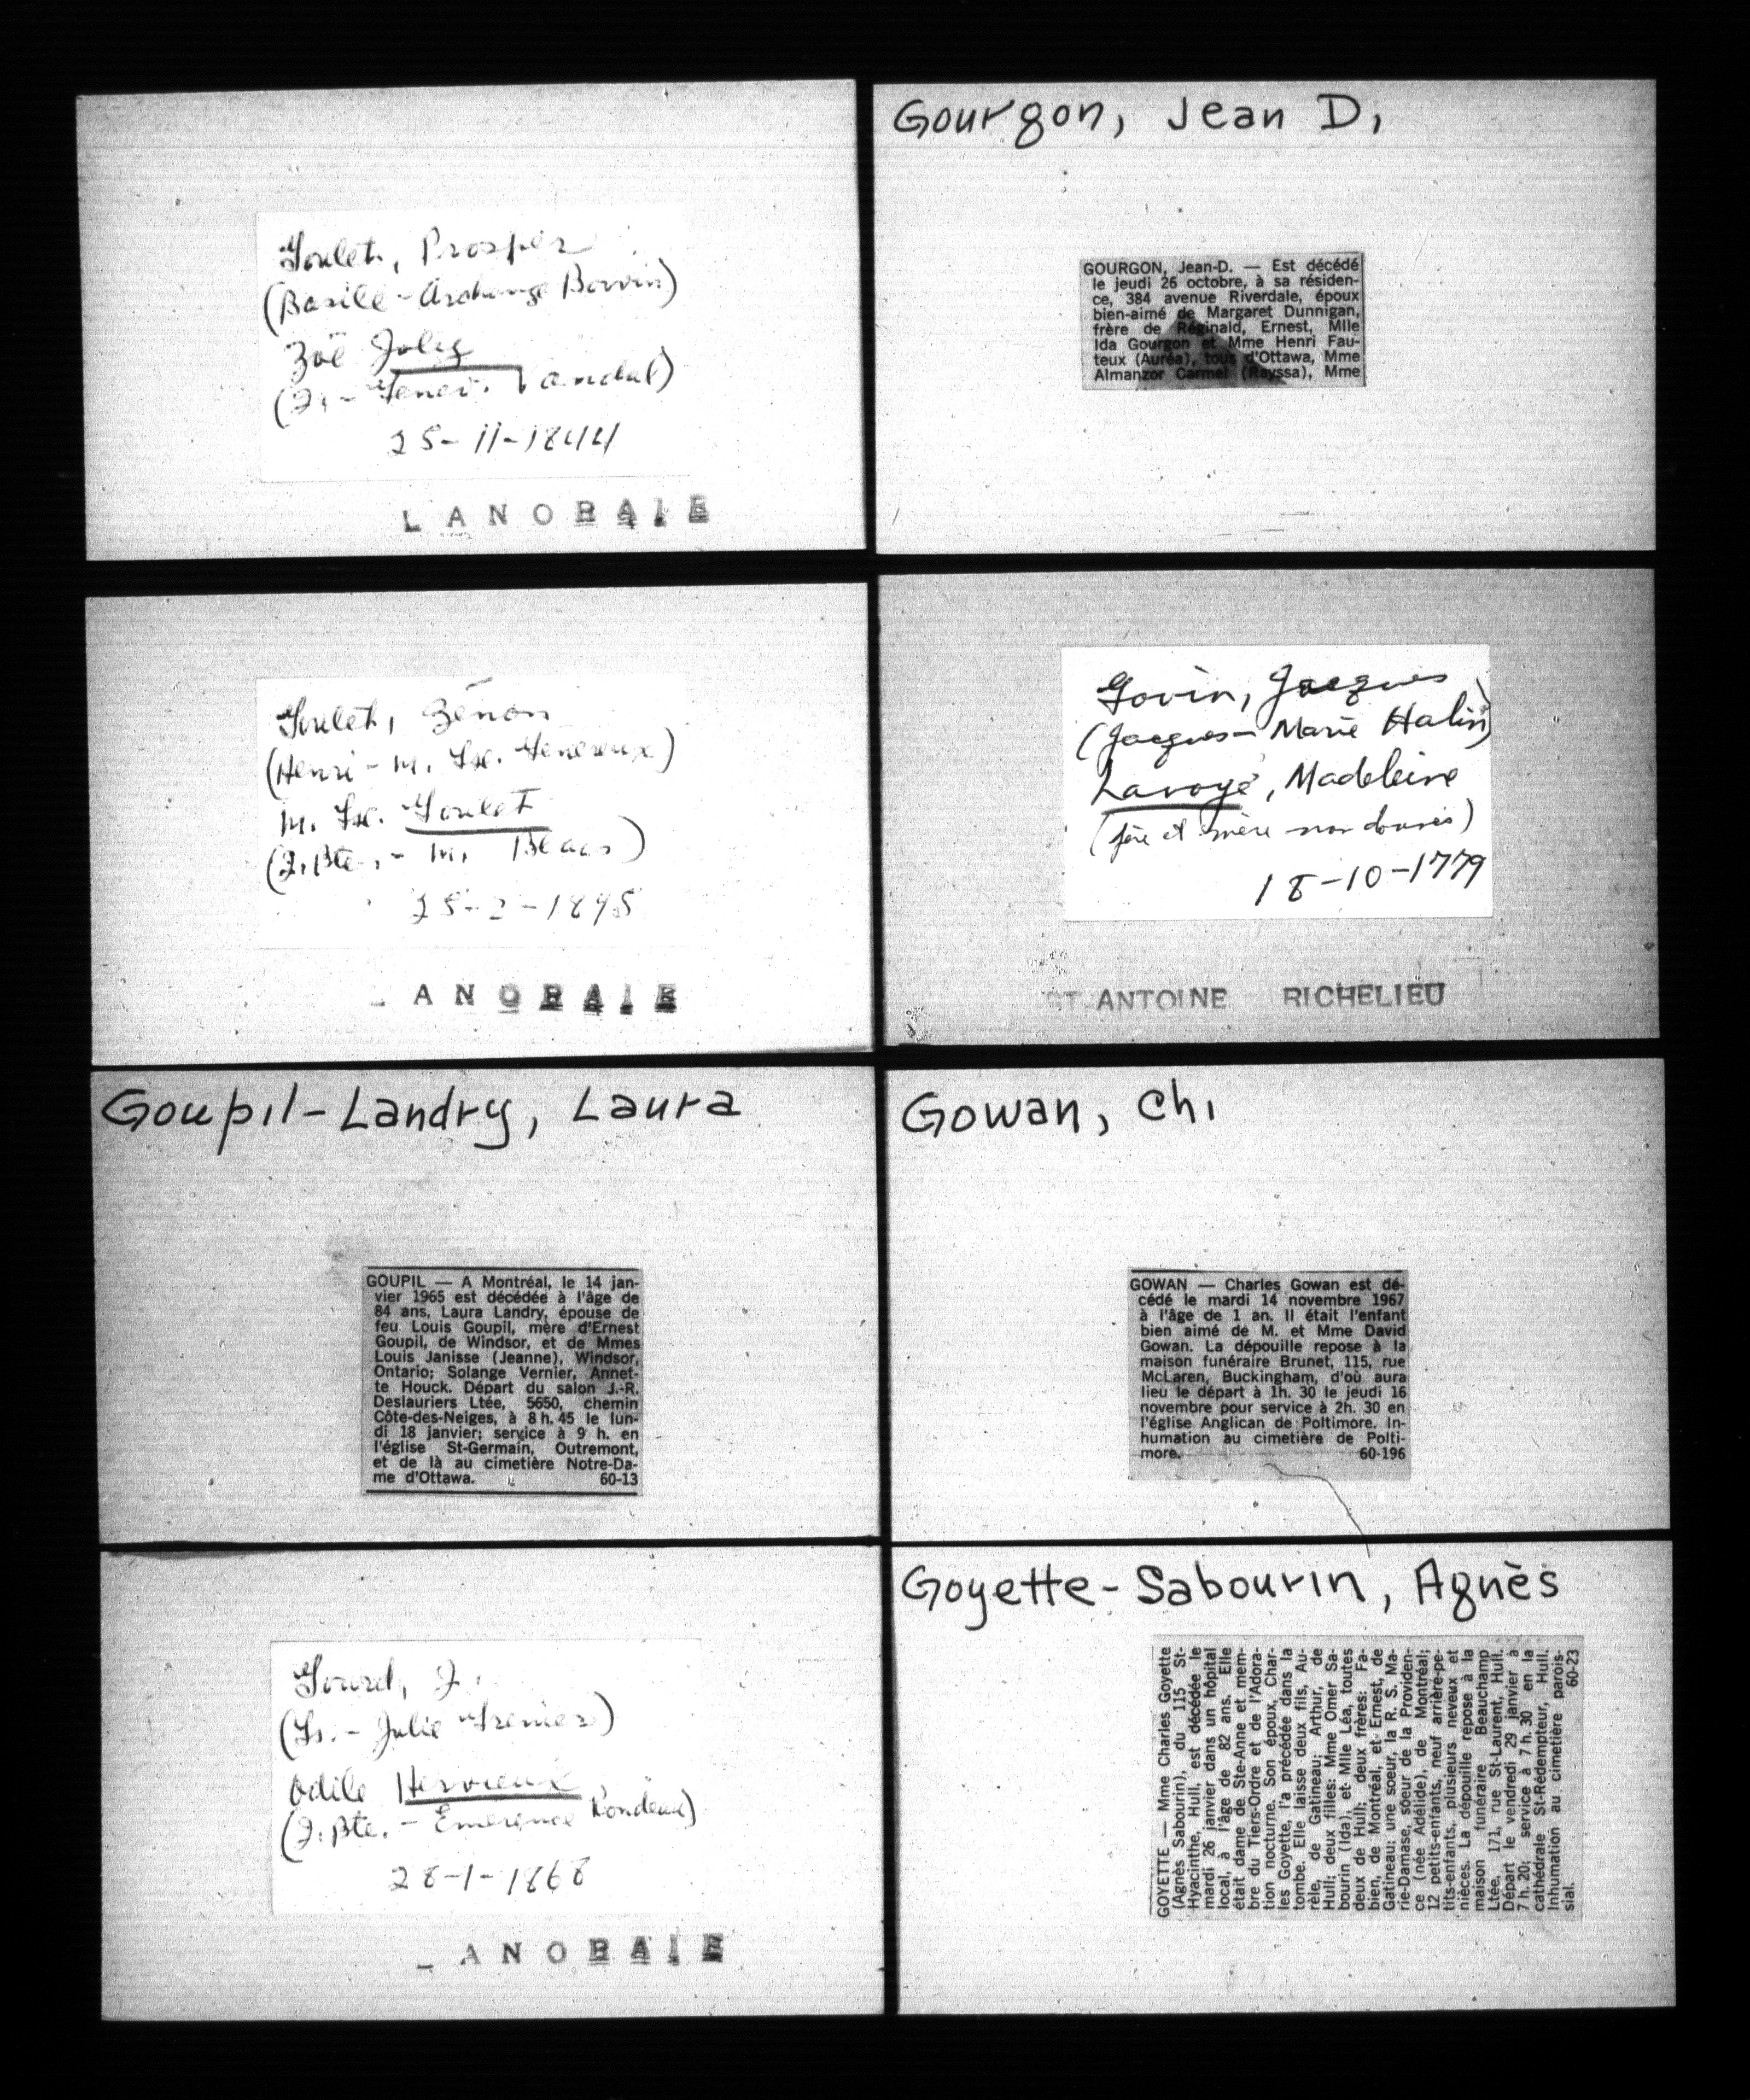 Goulet, Prosper
(Basile - Archange Boivin)
Zoë Joly
(J. - Genev. Vandal)
25-11-1844
LANORAIE
Goulet, Zénon
(Henri - M. Genereux)
M. Goulet
(J. Bte. - M.
ANORAIE
Goupil-Landry, Laura
GOUPIL — A Montréal, le 14 jan-
vier 1965 est décédée à l'âge de
84 ans, Laura Landry, épouse de
feu Louis Goupil, mère d'Ernest
Goupil, de Windsor, et de Mmes
Louis Janisse (Jeanne), Windsor,
Ontario; Solange Vernier, Annet-
te Houck. Départ du salon J.-R.
Deslauriers Ltée, 5650, chemin
Côte-des-Neiges, à 8 h. 45 le lun-
di 18 janvier; service à 9 h. en
l'église St-Germain, Outremont,
et de là au cimetière Notre-Da-
me d'Ottawa. 60-13
Gourd, J.
(Is. - Julie Grenier)
Odile Hervieux
(J. Bte. - Emerence Rondeau)
28-1-1868
ANORAIE
Gourgon, Jean D.
GOURGON, Jean-D. — Est décédé
le jeudi 26 octobre, à sa résiden-
ce, 384 avenue Riverdale, époux
bien-aimé de Margaret Dunnigan,
frère de Réginald, Ernest, Mlle
Ida Gourgon et Mme Henri Fau-
teux (Auréa), tous d'Ottawa, Mme
Almanzor Carmel (Rayssa), Mme
Govin, Jacques
(Jacques - Marie Halin)
Lavoye, Madeleine
(père et mère non donnés)
18-10-1779
ST-ANTOINE RICHELIEU
Gowan, Ch.
GOWAN — Charles Gowan est dé-
cédé le mardi 14 novembre 1967
à l'âge de 1 an. Il était l'enfant
bien aimé de M. et Mme David
Gowan. La dépouille repose à la
maison funéraire Brunet, 115, rue
McLaren, Buckingham, d'où aura
lieu le départ à 1h. 30 le jeudi 16
novembre pour service à 2h. 30 en
l'église Anglican de Poltimore. In-
humation au cimetière de Polti-
more. 60-196
Goyette-Sabourin, Agnès
GOYETTE — Mme Charles Goyette
(Agnès Sabourin), du 115 St-
Hyacinthe, Hull, est décédée le
mardi 26 janvier dans un hôpital
local, à l'âge de 82 ans. Elle
était dame de Ste-Anne et mem-
bre du Tiers-Ordre et de l'Adora-
tion nocturne. Son époux, Char-
les Goyette, l'a précédée dans la
tombe. Elle laisse deux fils, Au-
rèle, de Gatineau; Arthur, de
Hull; deux filles: Mme Omer Sa-
bourin (Ida), et Mlle Léa, toutes
deux de Hull; deux frères: Fa-
bien, de Montréal, et Ernest, de
Gatineau; une soeur, la R. S. Ma-
rie-Damase, soeur de la Providen-
ce (née Adélide), de Montréal;
12 petits-enfants, neuf arrière-pe-
tits-enfants, plusieurs neveux et
nièces. La dépouille repose à la
maison funéraire Beauchamp
Ltée, 171, rue St-Laurent, Hull.
Départ le vendredi 29 janvier à
7 h. 20; service à 7 h. 30 en la
cathédrale St-Rédempteur, Hull.
Inhumation au cimetière parois-
sial. 60-23